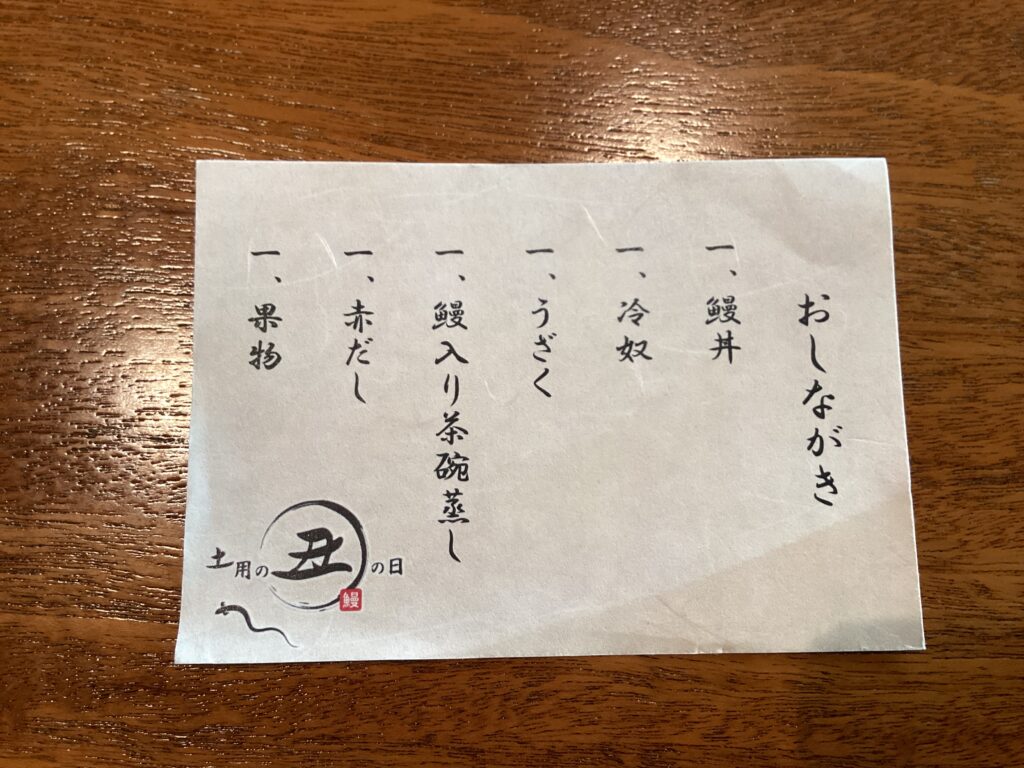 おしながき
一、鰻丼
一、冷奴
一、うざく
一、鰻入り茶碗蒸し
一、赤だし
一、果物
土用の丑の日
鰻